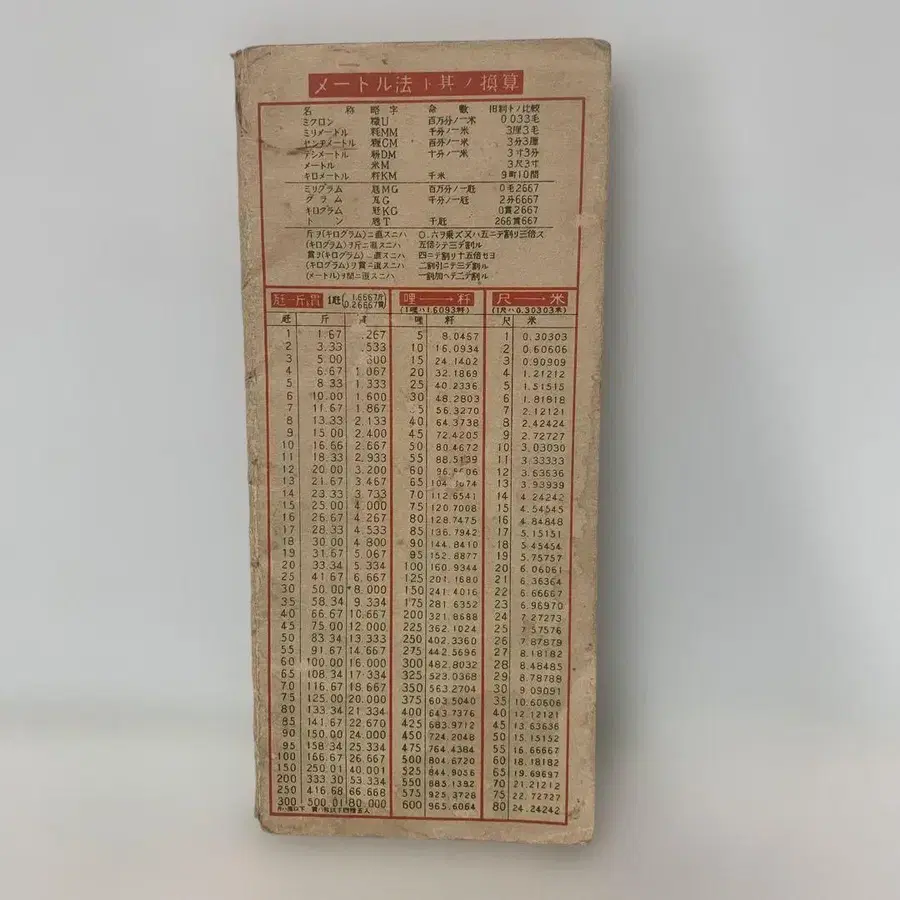 メートル法ト其ノ換算
名称 略字 命數 旧制トノ比較
ミクロン U 百万分ノ一米 0.033毛
ミリメートル 粍MM 千分ノ一米 3厘3毛
センチメートル 糎CM 百分ノ一米 3分3厘
デシメートル 粉DM 十分ノ一米 3寸3分
メートル 米M 3尺3寸
キロメートル 粁KM 千米 9町10間
ミリグラム 瓱MG 百万分ノ一瓩 0毛2667
グラム 瓦G 千分ノ一瓩 2分6667
キログラム 瓩KG 0貫2667
トン 瓲T 千瓩 266貫667
斤ヲ(キログラム)ニ直スニハ 〇.六ヲ乗ズ又ハ五ニテ割リ三倍ス
(キログラム)ヲ斤ニ直スニハ 五倍シテ三デ割ル
貫ヲ(キログラム)ニ直スニハ 四ニテ割リ十五倍セヨ
(キログラム)ヲ貫ニ直スニハ 二割引ニテ三デ割ル
(メートル)ヲ間ニ直スニハ 一割加ヘテ二デ割ル
瓩―斤貫 1瓩(1.6667斤 0.26667貫)
瓩 斤 貫
1 1.67 .267
2 3.33 .533
3 5.00 .800
4 6.67 1.067
5 8.33 1.333
6 10.00 1.600
7 11.67 1.867
8 13.33 2.133
9 15.00 2.400
10 16.66 2.667
11 18.33 2.933
12 20.00 3.200
13 21.67 3.467
14 23.33 3.733
15 25.00 4.000
16 26.67 4.267
17 28.33 4.533
18 30.00 4.800
19 31.67 5.067
20 33.34 5.334
25 41.67 6.667
30 50.00 8.000
35 58.34 9.334
40 66.67 10.667
45 75.00 12.000
50 83.34 13.333
55 91.67 14.667
60 100.00 16.000
65 108.34 17.334
70 116.67 18.667
75 125.00 20.000
80 133.34 21.334
85 141.67 22.670
90 150.00 24.000
95 158.34 25.334
100 166.67 26.667
150 250.01 40.001
200 333.30 53.334
250 416.68 66.668
300 500.01 80.000
哩→粁
(1哩ハ1.6093粁)
哩 粁
5 8.0467
10 16.0934
15 24.1402
20 32.1869
25 40.2336
30 48.2803
35 56.3270
40 64.3738
45 72.4205
50 80.4672
55 88.5139
60 96.5606
65 104.6074
70 112.6541
75 120.7008
80 128.7475
85 136.7942
90 144.8410
95 152.8877
100 160.9344
125 201.1680
150 241.4016
175 281.6352
200 321.8688
225 362.1024
250 402.3360
275 442.5696
300 482.8032
325 523.0368
350 563.2704
375 603.5040
400 643.7376
425 683.9712
450 724.2048
475 764.4384
500 804.6720
525 844.9056
550 885.1392
575 925.3728
600 965.6064
尺―米
(1尺ハ0.30303米)
尺 米
1 0.30303
2 0.60606
3 0.90909
4 1.21212
5 1.51515
6 1.81818
7 2.12121
8 2.42424
9 2.72727
10 3.03030
11 3.33333
12 3.63636
13 3.93939
14 4.24242
15 4.54545
16 4.84848
17 5.15151
18 5.45454
19 5.75757
20 6.06061
21 6.36364
22 6.66667
23 6.96970
24 7.27273
25 7.57576
26 7.87879
27 8.18182
28 8.48485
29 8.78788
30 9.09091
35 10.60606
40 12.12121
45 13.63636
50 15.15152
55 16.66667
60 18.18182
65 19.69697
70 21.21212
75 22.72727
80 24.24242